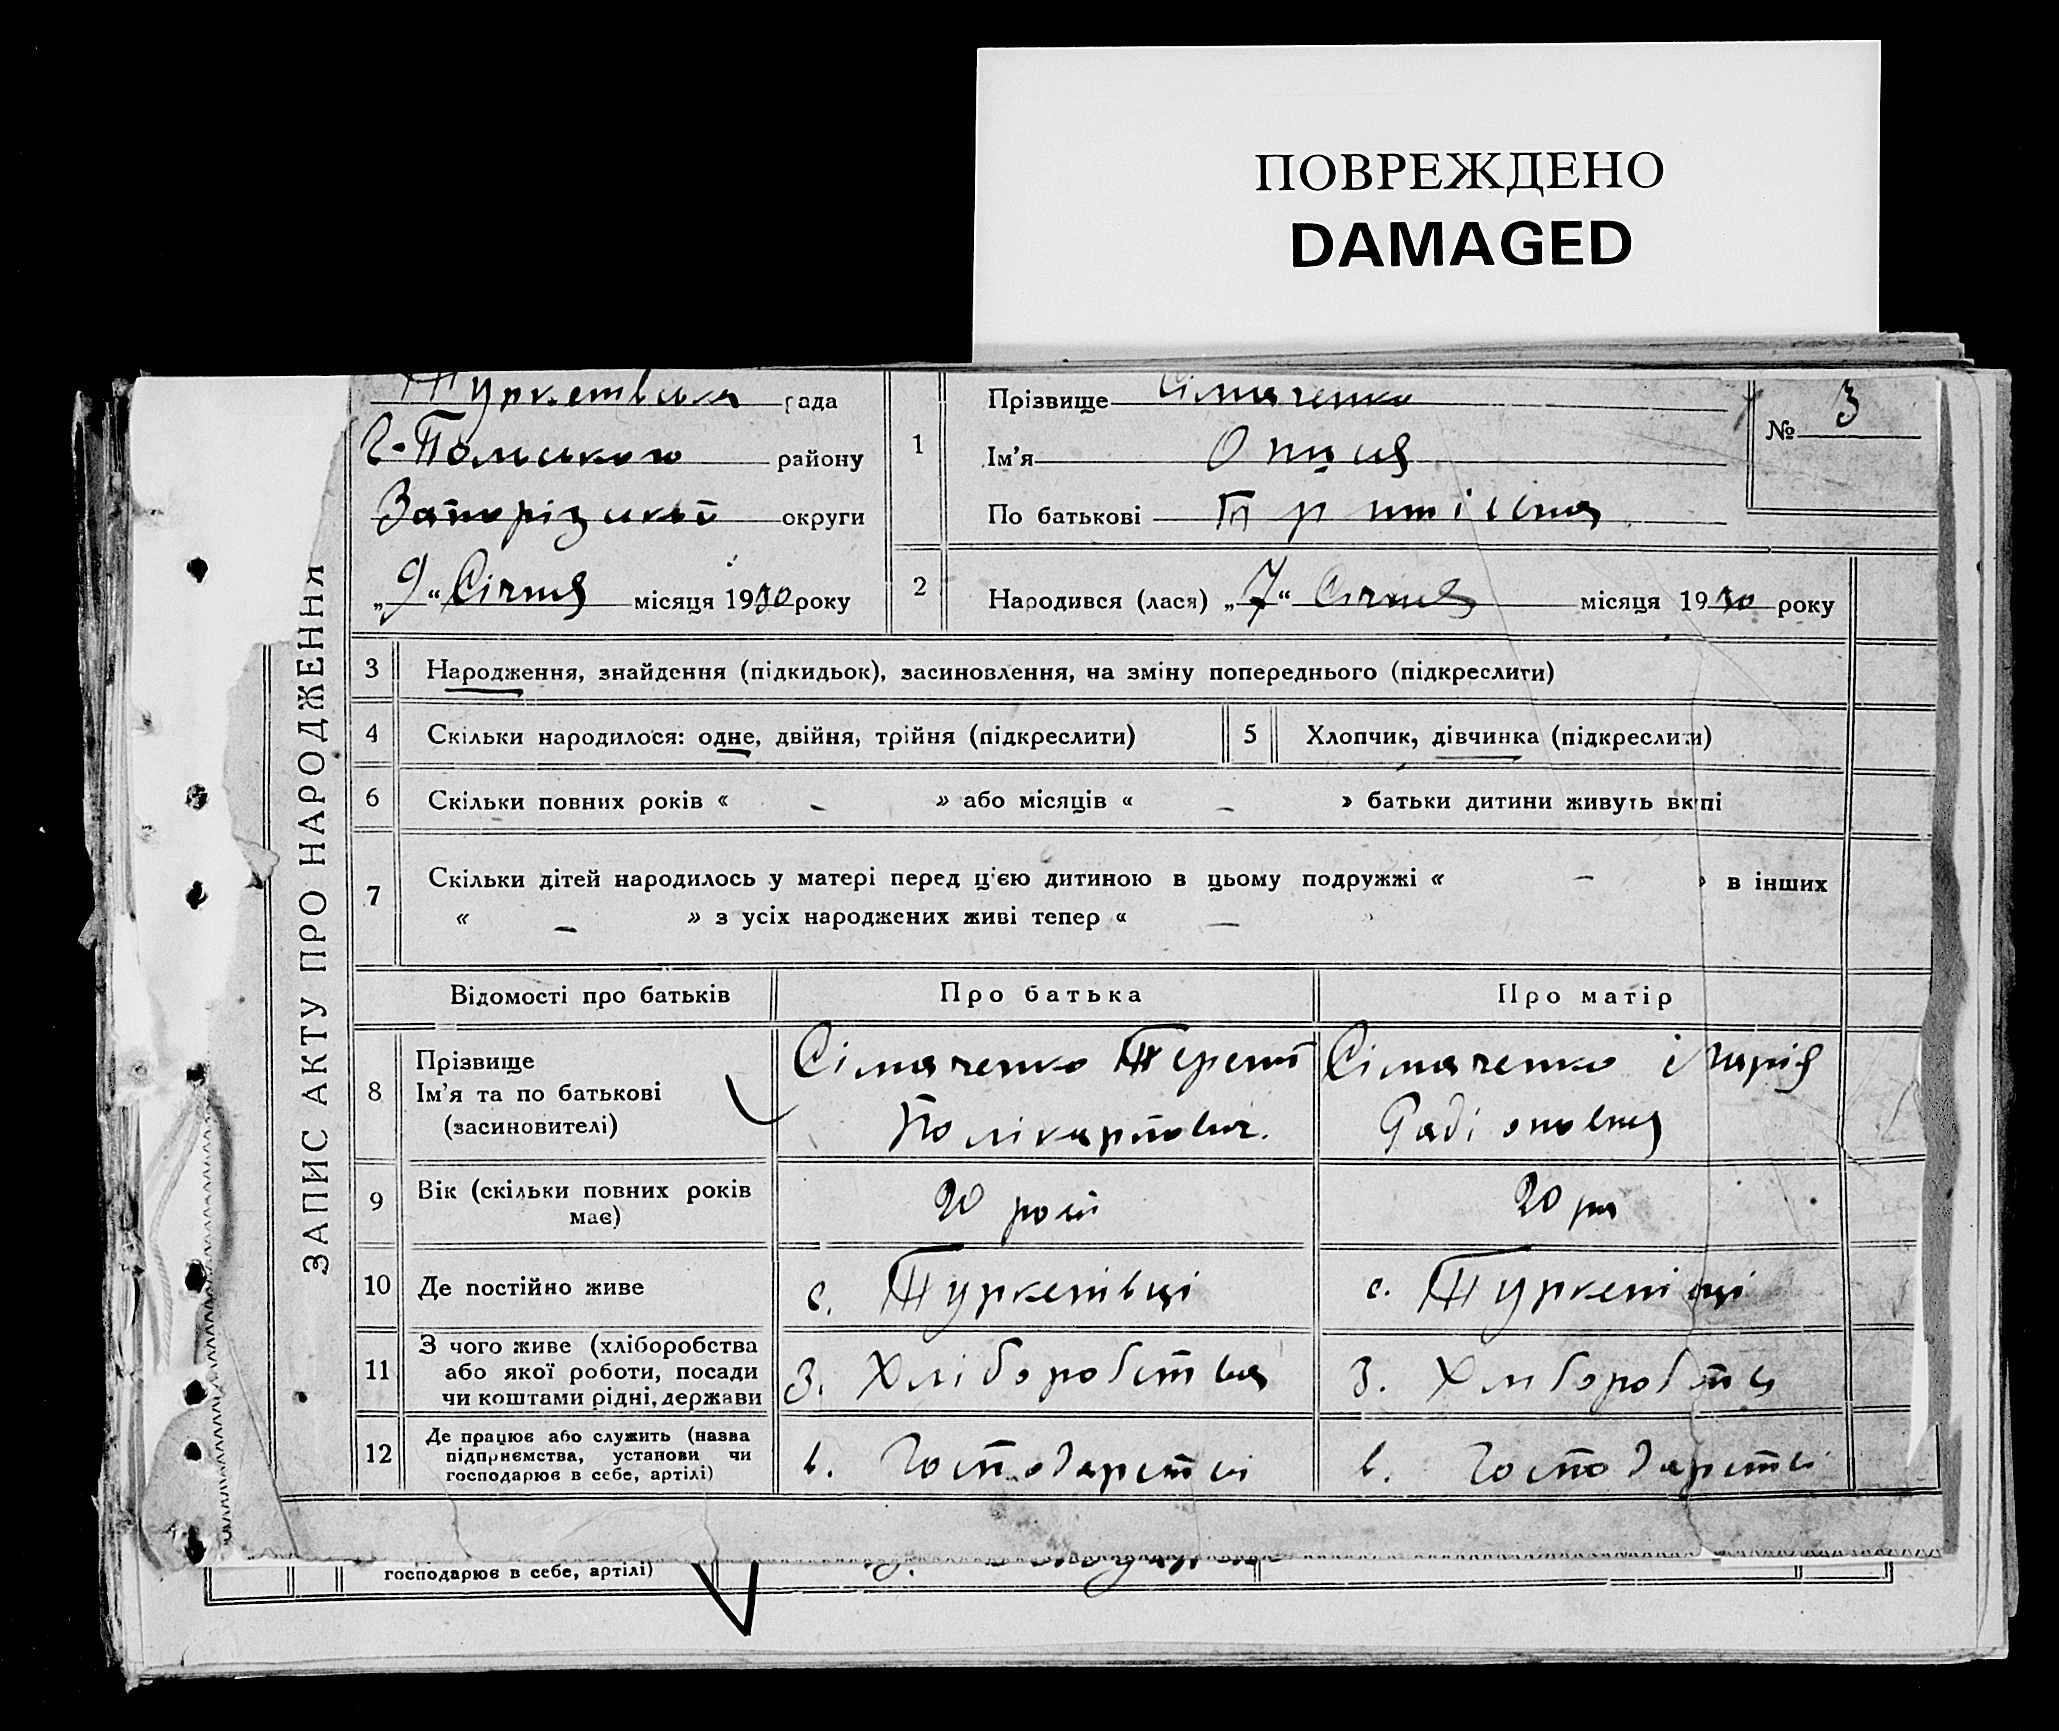 ПОВРЕЖДЕНО
DAMAGED
Туркенівська рада
Г-Польського району
Запорізької округи
„9“ Січня місяця 1930 року
1
Прізвище Сімаченко
Ім'я
По батькові
№ 3
2
Народився (лася) „7“ Січня місяця 1930 року
ЗАПИС АКТУ ПРО НАРОДЖЕННЯ
3 Народження, знайдення (підкидьок), засиновлення, на зміну попереднього (підкреслити)
4 Скільки народилося: одне, двійня, трійня (підкреслити) 5 Хлопчик, дівчинка (підкреслити)
6 Скільки повних років « - » або місяців « - » батьки дитини живуть вкупі
7 Скільки дітей народилось у матері перед ц'єю дитиною в цьому подружжі « - » в інших
« - » з усіх народжених живі тепер « -
Відомості про батьків Про батька Про матір
8 Прізвище
Ім'я та по батькові
(засиновителі)
Сімаченко Терент
Полікарпович.
Сімаченко Марія
Радіоновна
9 Вік (скільки повних років
має)
20 років
20 рок
10 Де постійно живе с. Туркенівці с. Туркенівці
11 З чого живе (хліборобства
або якої роботи, посади
чи коштами рідні, держави
З. Хліборобства З. Хліборобства
12 Де працює або служить (назва
підприємства, установи чи
господарює в себе, артілі)
в. Господарстві в. Господарстві
господарює в себе, артілі)